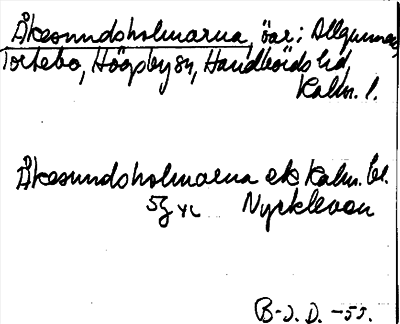 Åkesundsholmarna, öar i Allgunnen,
Tortebo, Högsby sn, Handbörds hd,
Kalm. l.
Åkesundsholmarna ek Kalm. bl.
5g
B-J. D. -53.